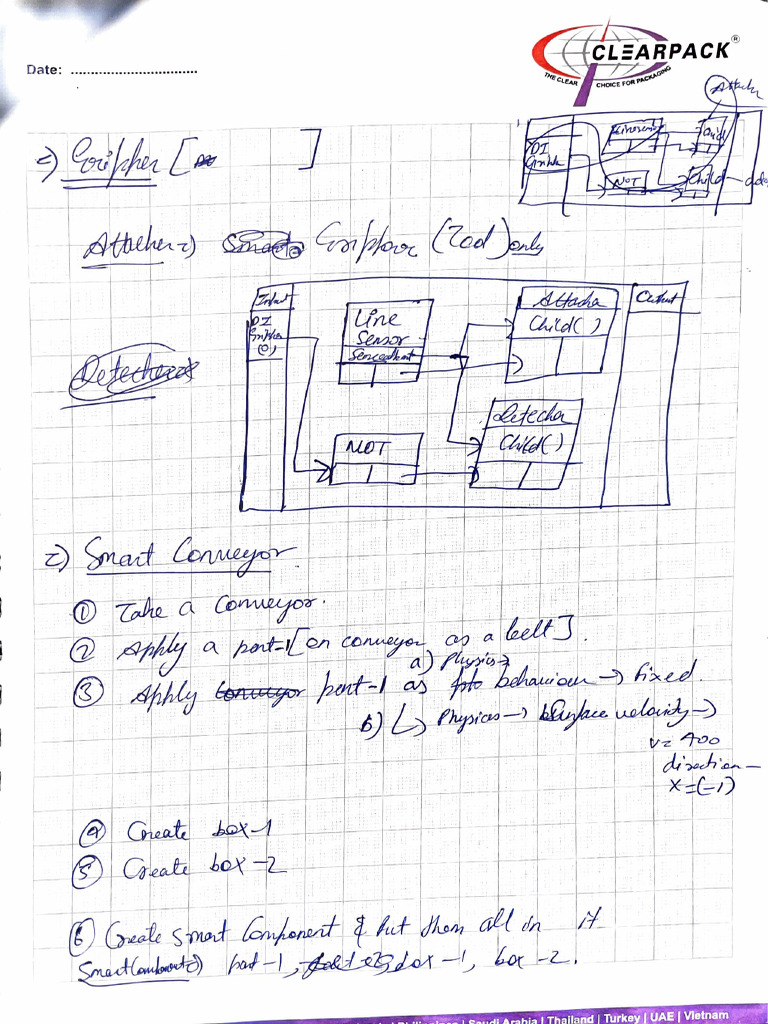 CLEARPACK®
THE CLEAR CHOICE FOR PACKAGING
Date: ................................
Attacher
DI
NOT
Child
=) Gripher [ ]
Attacher =) Gripher (Tool) only
Input
DI
Gripher
(0)
Line
Sensor
Sensedpart
Attacher
Child( )
Output
Detecher
NOT
Detecher
Child( )
2) Smart Conveyor
① Take a conveyor.
② Apply a part-1 [on conveyor as a belt].
a) Physics →
③ Apply part-1 as behaviour → fixed.
b) ↳ Physics → Surface velocity →
v = 400
direction –
x = (-1)
④ Create box-1
⑤ Create box-2
⑥ Create smart Component & Put them all in it
Smart Component =) part-1, box-1, box-2.
Saudi Arabia | Thailand | Turkey | UAE | Vietnam